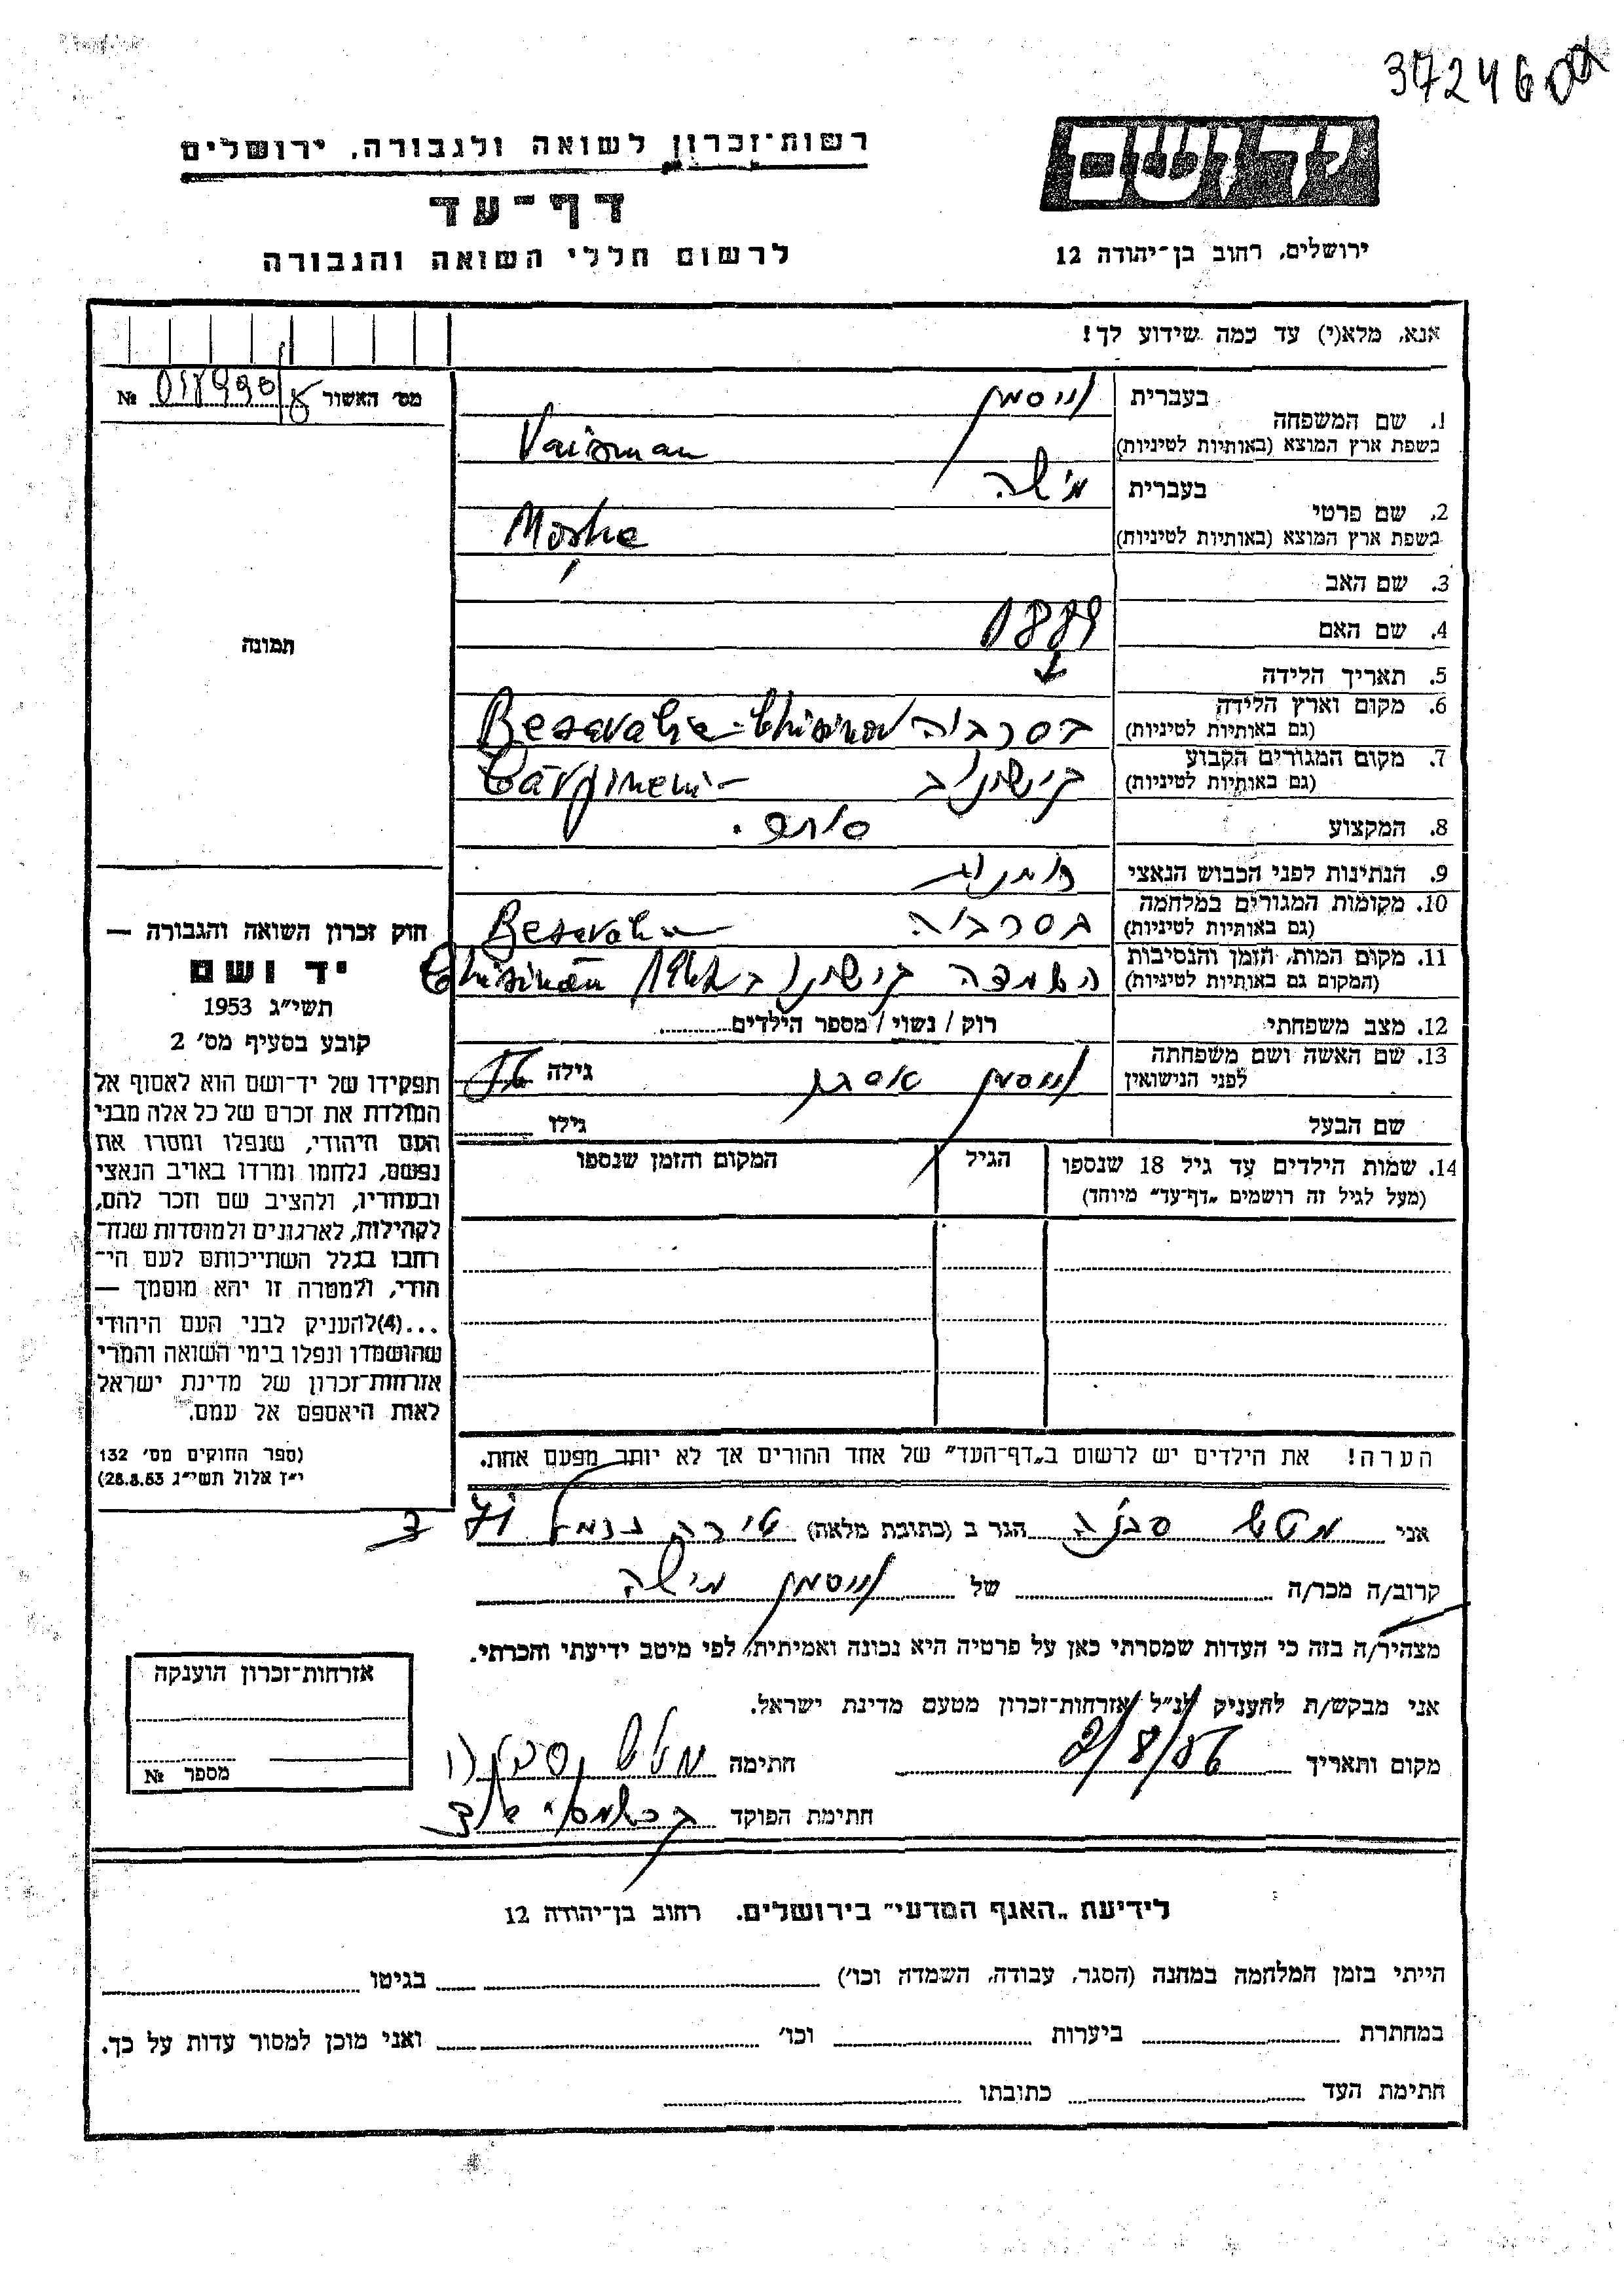 372460
רשות־זכרון לשואה ולגבורה, ירושלים
דף־עד
לרשום חללי השואה והגבורה
יד ושם
ירושלים, רחוב בן־יהודה 12
אנא, מלא(י) עד כמה שידוע לך!
מס׳ האשור №
1. שם המשפחה בעברית וויסמן
בשפת ארץ המוצא (באותיות לטיניות) Vaisman
2. שם פרטי בעברית מישה
בשפת ארץ המוצא (באותיות לטיניות) Moshe
3. שם האב
4. שם האם
1889
5. תאריך הלידה
6. מקום וארץ הלידה
(גם באותיות לטיניות) בסרביה
7. מקום המגורים הקבוע
(גם באותיות לטיניות) קישינוב
8. המקצוע סוחר.
9. הנתינות לפני הכבוש הנאצי
10. מקומות המגורים במלחמה
(גם באותיות לטיניות) בסרביה
11. מקום המות, הזמן והנסיבות
(המקום גם באותיות לטיניות) השמדה Chisinău
12. מצב משפחתי רוק / נשוי / מספר הילדים
13. שם האשה ושם משפחתה
לפני הנישואין וויסמן גילה
שם הבעל גילו
14. שמות הילדים עד גיל 18 שנספו הגיל המקום והזמן שנספו
(מעל לגיל זה רושמים „דף־עד״ מיוחד)
הערה! את הילדים יש לרשום ב„דף־העד״ של אחד ההורים אך לא יותר מפעם אחת.
תמונה
חוק זכרון השואה והגבורה —
יד ושם
תשי״ג 1953
קובע בסעיף מס׳ 2
תפקידו של יד־ושם הוא לאסוף אל
המולדת את זכרם של כל אלה מבני
העם היהודי, שנפלו ומסרו את
נפשם, נלחמו ומרדו באויב הנאצי
ובעוזריו, ולהציב שם וזכר להם,
לקהילות, לארגונים ולמוסדות שנח־
רחבו בגלל השתייכותם לעם הי־
הודי, ולמטרה זו יהא מוסמך —
...(4)להעניק לבני העם היהודי
שהושמדו ונפלו בימי השואה והמרי
אזרחות־זכרון של מדינת ישראל
לאות היאספם אל עמם.
(ספר החוקים מס׳ 132
י״ז אלול תשי״ג 28.8.53)
אני הגר ב (כתובת מלאה) טירה
קרוב/ה מכר/ה של וויסמן מישה
מצהיר/ה בזה כי העדות שמסרתי כאן על פרטיה היא נכונה ואמיתית, לפי מיטב ידיעתי והכרתי.
אני מבקש/ת להעניק לנ״ל אזרחות־זכרון מטעם מדינת ישראל.
מקום ותאריך חתימה
חתימת הפוקד
אזרחות־זכרון הוענקה
מספר №
לידיעת „האגף המדעי״ בירושלים. רחוב בן־יהודה 12
הייתי בזמן המלחמה במחנה (הסגר, עבודה, השמדה וכו׳) בגיטו
במחתרת ביערות וכו׳ ואני מוכן למסור עדות על כך.
חתימת העד כתובתו